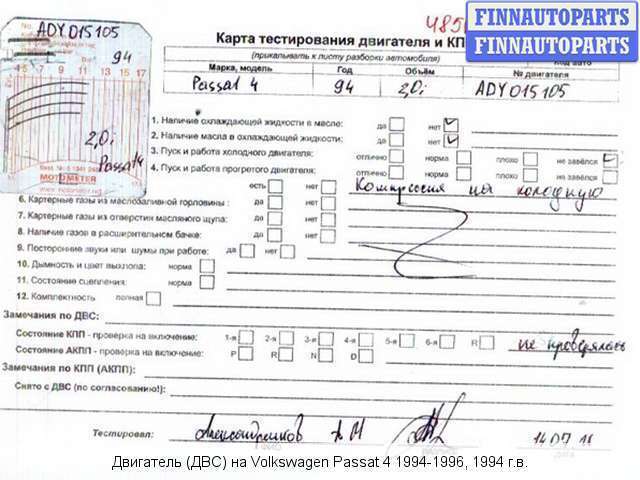 ADY015105
94
4 5 7 9 11 13 15 17
2,0i
Passat 4
MOTOMETER
FINNAUTOPARTS
FINNAUTOPARTS
Карта тестирования двигателя и КП
(прикалывать к листу разборки автомобиля)
Марка, модель Год Объём № двигателя
Passat 4 94 2,0i ADY015105
1. Наличие охлаждающей жидкости в масле: да нет
2. Наличие масла в охлаждающей жидкости: да нет
3. Пуск и работа холодного двигателя: отлично норма плохо не завёлся
4. Пуск и работа прогретого двигателя: отлично норма плохо не завёлся
есть нет Компрессия на холодную
6. Картерные газы из маслозаливной горловины : да нет
7. Картерные газы из отверстия масляного щупа: да нет
8. Наличие газов в расширительном бачке: да нет
9. Посторонние звуки или шумы при работе: да нет
10. Дымность и цвет выхлопа: норма
11. Состояние сцепления: норма
12. Комплектность полная
Замечания по ДВС:
Состояние КПП - проверка на включение: 1-я 2-я 3-я 4-я 5-я 6-я R не проверялась
Состояние АКПП - проверка на включение: P R N D
Замечания по КПП (АКПП):
Снято с ДВС (по согласованию!):
Тестировал:
Двигатель (ДВС) на Volkswagen Passat 4 1994-1996, 1994 г.в.